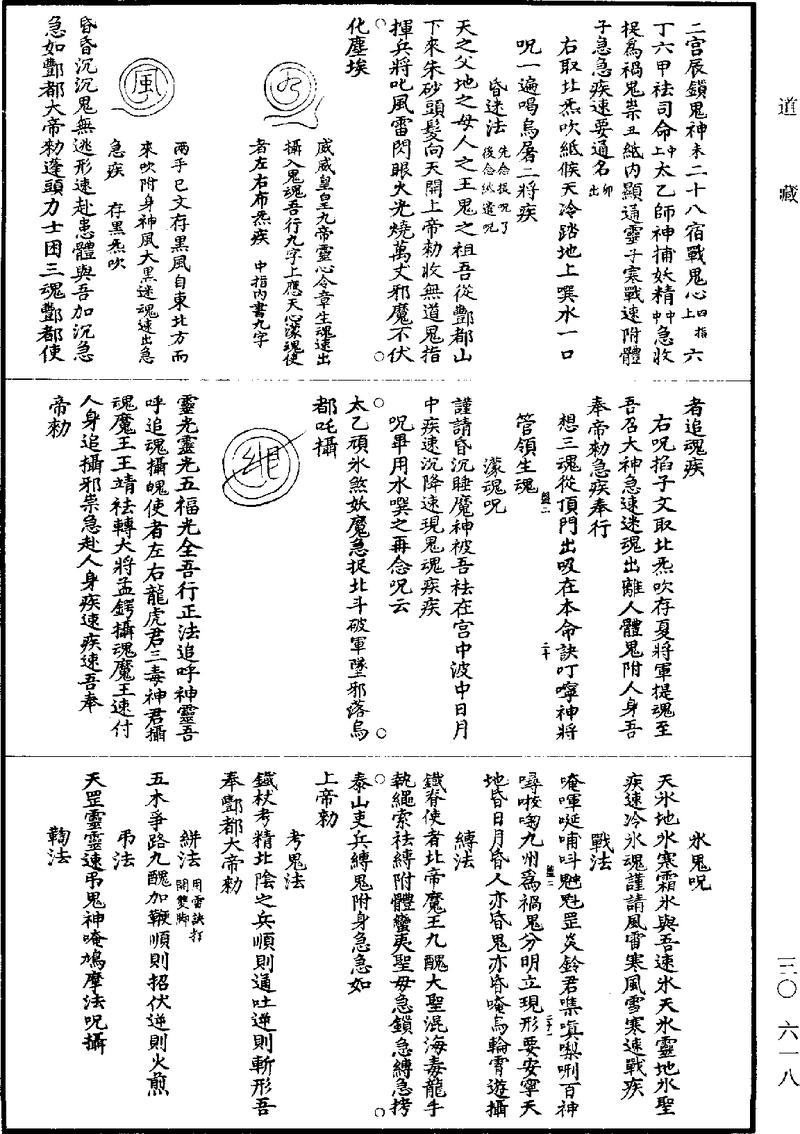 道藏
二宮辰鎖鬼神未二十八宿戰鬼心四指上六
丁六甲祛司命中上太乙師神捕妖精中中急收
捉為禍鬼祟丑紙内顯通靈子寒戰速附體
子急急疾速要通名卯出
右取北炁吹紙候天冷踏地上噀水一口
呪一遍喝烏屠二將疾
昏迷法先念捉呪了後念紙遣呪
天之父地之母人之王鬼之祖吾從酆都山
下來朱砂頭髮向天開上帝勅收無道鬼指
揮兵將叱風雷閃眼火光燒萬丈邪魔不伏
化塵埃
威威皇皇九帝靈心令章生魂速出
攝入鬼魂吾行九字上應天心濛魂使
者左右布炁疾 中指内書九字
風
兩手巳文存黑風自東北方而
來吹附身神風大黑迷魂速出急
急疾 存黑炁吹
昏昏沉沉鬼無逃形速赴患體與吾加沉急
急如酆都大帝勅蓬頭力士困三魂酆都使
者追魂疾
右呪掐子文取北炁吹存夏將軍提魂至
吾召大神急速迷魂出離人體鬼附人身吾
奉帝勅急疾奉行
想三魂從頂門出吸在本命訣叮嚀神將
管領生魂
濛魂呪
謹請昏沉睡魔神被吾祛在宮中波中日月
中疾速沉降速現鬼魂疾疾
呪畢用水噀之再念呪云
太乙頑氷煞妖魔急捉北斗破軍墜邪落烏
都吒攝
靈光靈光五福光全吾行正法追呼神靈吾
呼追魂攝魄使者左右龍虎君三毒神君攝
魂魔王王靖祛轉大將孟鍔攝魂魔王速付
人身追攝邪祟急赴人身疾速疾速吾奉
帝勅
氷鬼呪
天氷地氷寒霜氷與吾速氷天氷靈地氷聖
疾速冷氷魂謹請風雷寒風雪寒速戰疾
戰法
唵㖶唌哺呌魈魁罡炎鈴君㗱嗔㗚唎百神
噚㗇啕九州為禍鬼分明立現形要安寧天
地昏日月昏人亦昏鬼亦昏唵烏輪霄遊攝
縛法
鐵脊使者北帝魔王九醜大聖混海毒龍手
執繩索祛縛附體蠻夷聖毋急鎖急縛急拷
泰山吏兵縛鬼附身急急如
上帝勅
考鬼法
鐵杖考精北陰之兵順則通吐逆則斬形吾
奉酆都大帝勅
絣法用雷訣打開雙脚
五木爭路九醜加鞭順則招伏逆則火煎
吊法
天罡靈靈速吊鬼神唵鳩摩法呪攝
鞫法
三〇 六一八